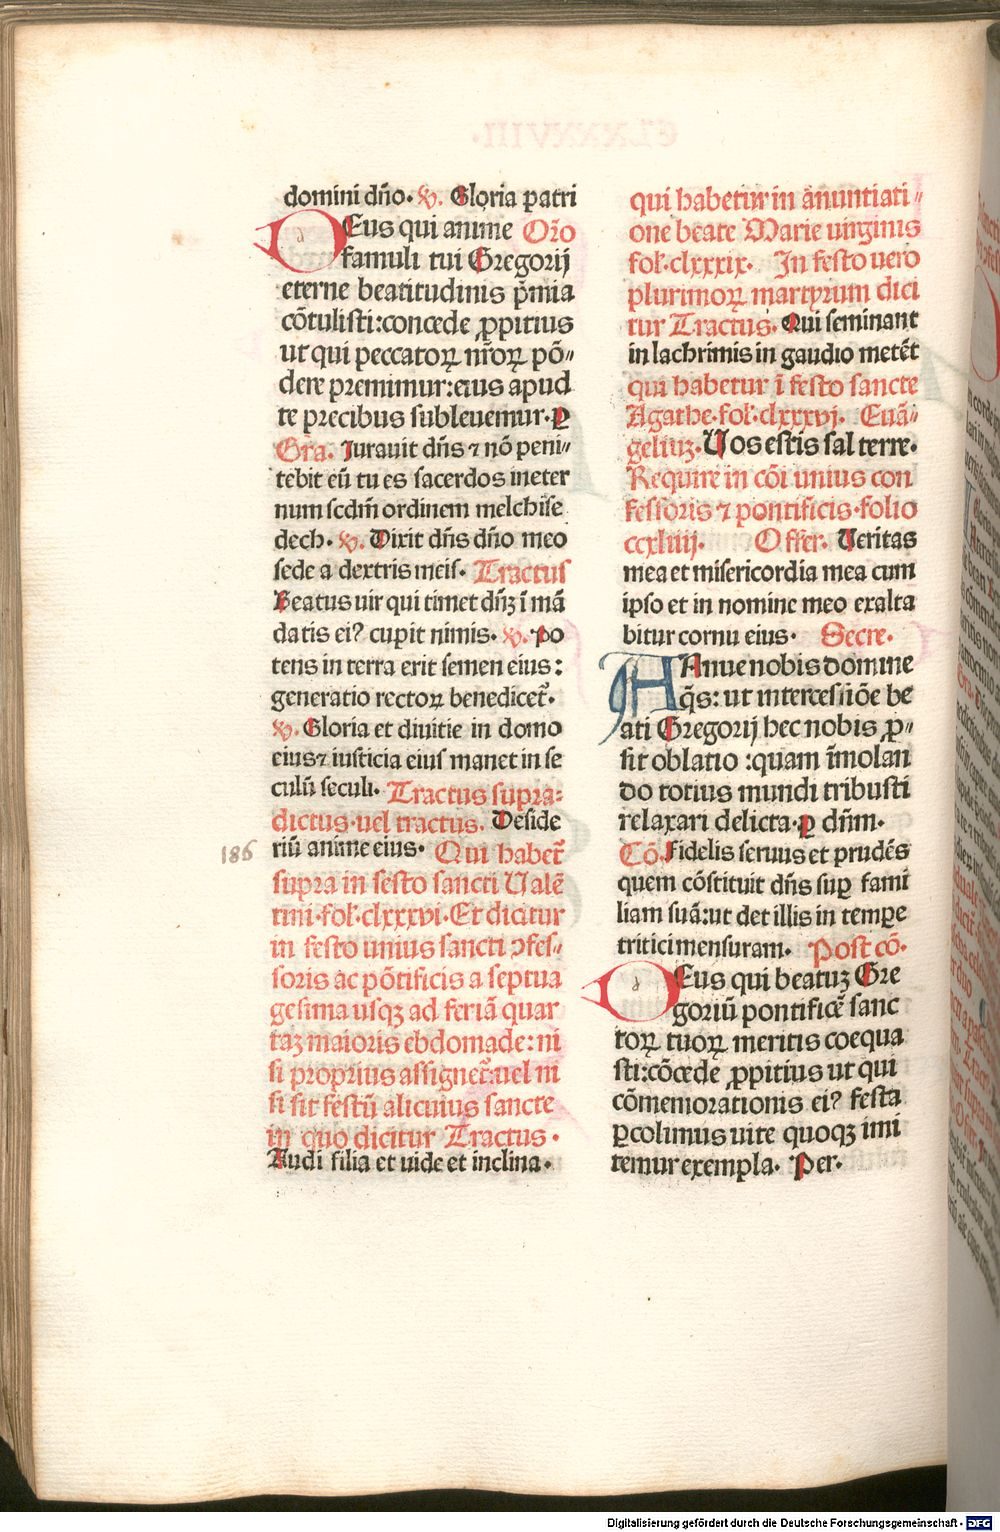 domini dño. ℣. Gloria patri
DEus qui anime Orõ
famuli tui Gregorij
eterne beatitudinis p̃mia
cõtulisti: concede ꝓpitius
ut qui peccatoꝝ nr̃oꝝ põ⸗
dere premimur: eius apud
te precibus subleuemur. ꝑ
Gra. Jurauit dñs ⁊ nõ peni⸗
tebit eũ tu es sacerdos ineter
num scdm̃ ordinem melchise
dech. ℣. Dixit dñs dño meo
sede a dextris meis. Tractus
Beatus uir qui timet dñꝫ ĩ mã
datis eiꝰ cupit nimis. ℣. Po
tens in terra erit semen eius:
generatio rectoꝝ benedicet᷑.
℣. Gloria et diuitie in domo
eius ⁊ iusticia eius manet in se
culũ seculi. Tractus supra⸗
dictus. uel tractus. Deside
186 riũ anime eius. Qui habet᷑
supra in festo sancti Ualẽ
tini. fol. clxxxvi. Et dicitur
in festo unius sancti ↄfes⸗
soris ac põtificis a septua
gesima usqꝫ ad feriã quar
taꝫ maioris ebdomade: ni
si proprius assignet᷑: uel ni
si sit festũ alicuius sancte
in quo dicitur Tractus.
Audi filia et uide et inclina.
qui habetur in ãnuntiati⸗
one beate Marie uirginis
fol. clxxxix. In festo uero
plurimoꝝ martyrum dici
tur Tractus. Qui seminant
in lachrimis in gaudio metẽt
qui habetur ĩ festo sancte
Agathe. fol. clxxxvj. Euã⸗
geliuꝫ. Uos estis sal terre.
Require in cõi unius con
fessoris ⁊ pontificis. folio
ccxliiij. Offer. Ueritas
mea et misericordia mea cum
ipso et in nomine meo exalta
bitur cornu eius. Secre.
ANnue nobis domine
q̃s: ut intercessiõe be
ati Gregorij hec nobis ꝓ⸗
sit oblatio: quam ĩmolan
do totius mundi tribusti
relaxari delicta. ꝑ dñm.
Cõ. Fidelis seruus et prudẽs
quem cõstituit dñs suꝑ fami
liam suã: ut det illis in tempe
tritici mensuram. Post cõ.
DEus qui beatuꝫ Gre
goriũ pontificẽ sanc
toꝝ tuoꝝ meritis coequa
sti: cõcede ꝓpitius ut qui
cõmemorationis eiꝰ festa
ꝑcolimus uite quoqꝫ imi
temur exempla. Per.
Digitalisierung gefördert durch die Deutsche Forschungsgemeinschaft - DFG